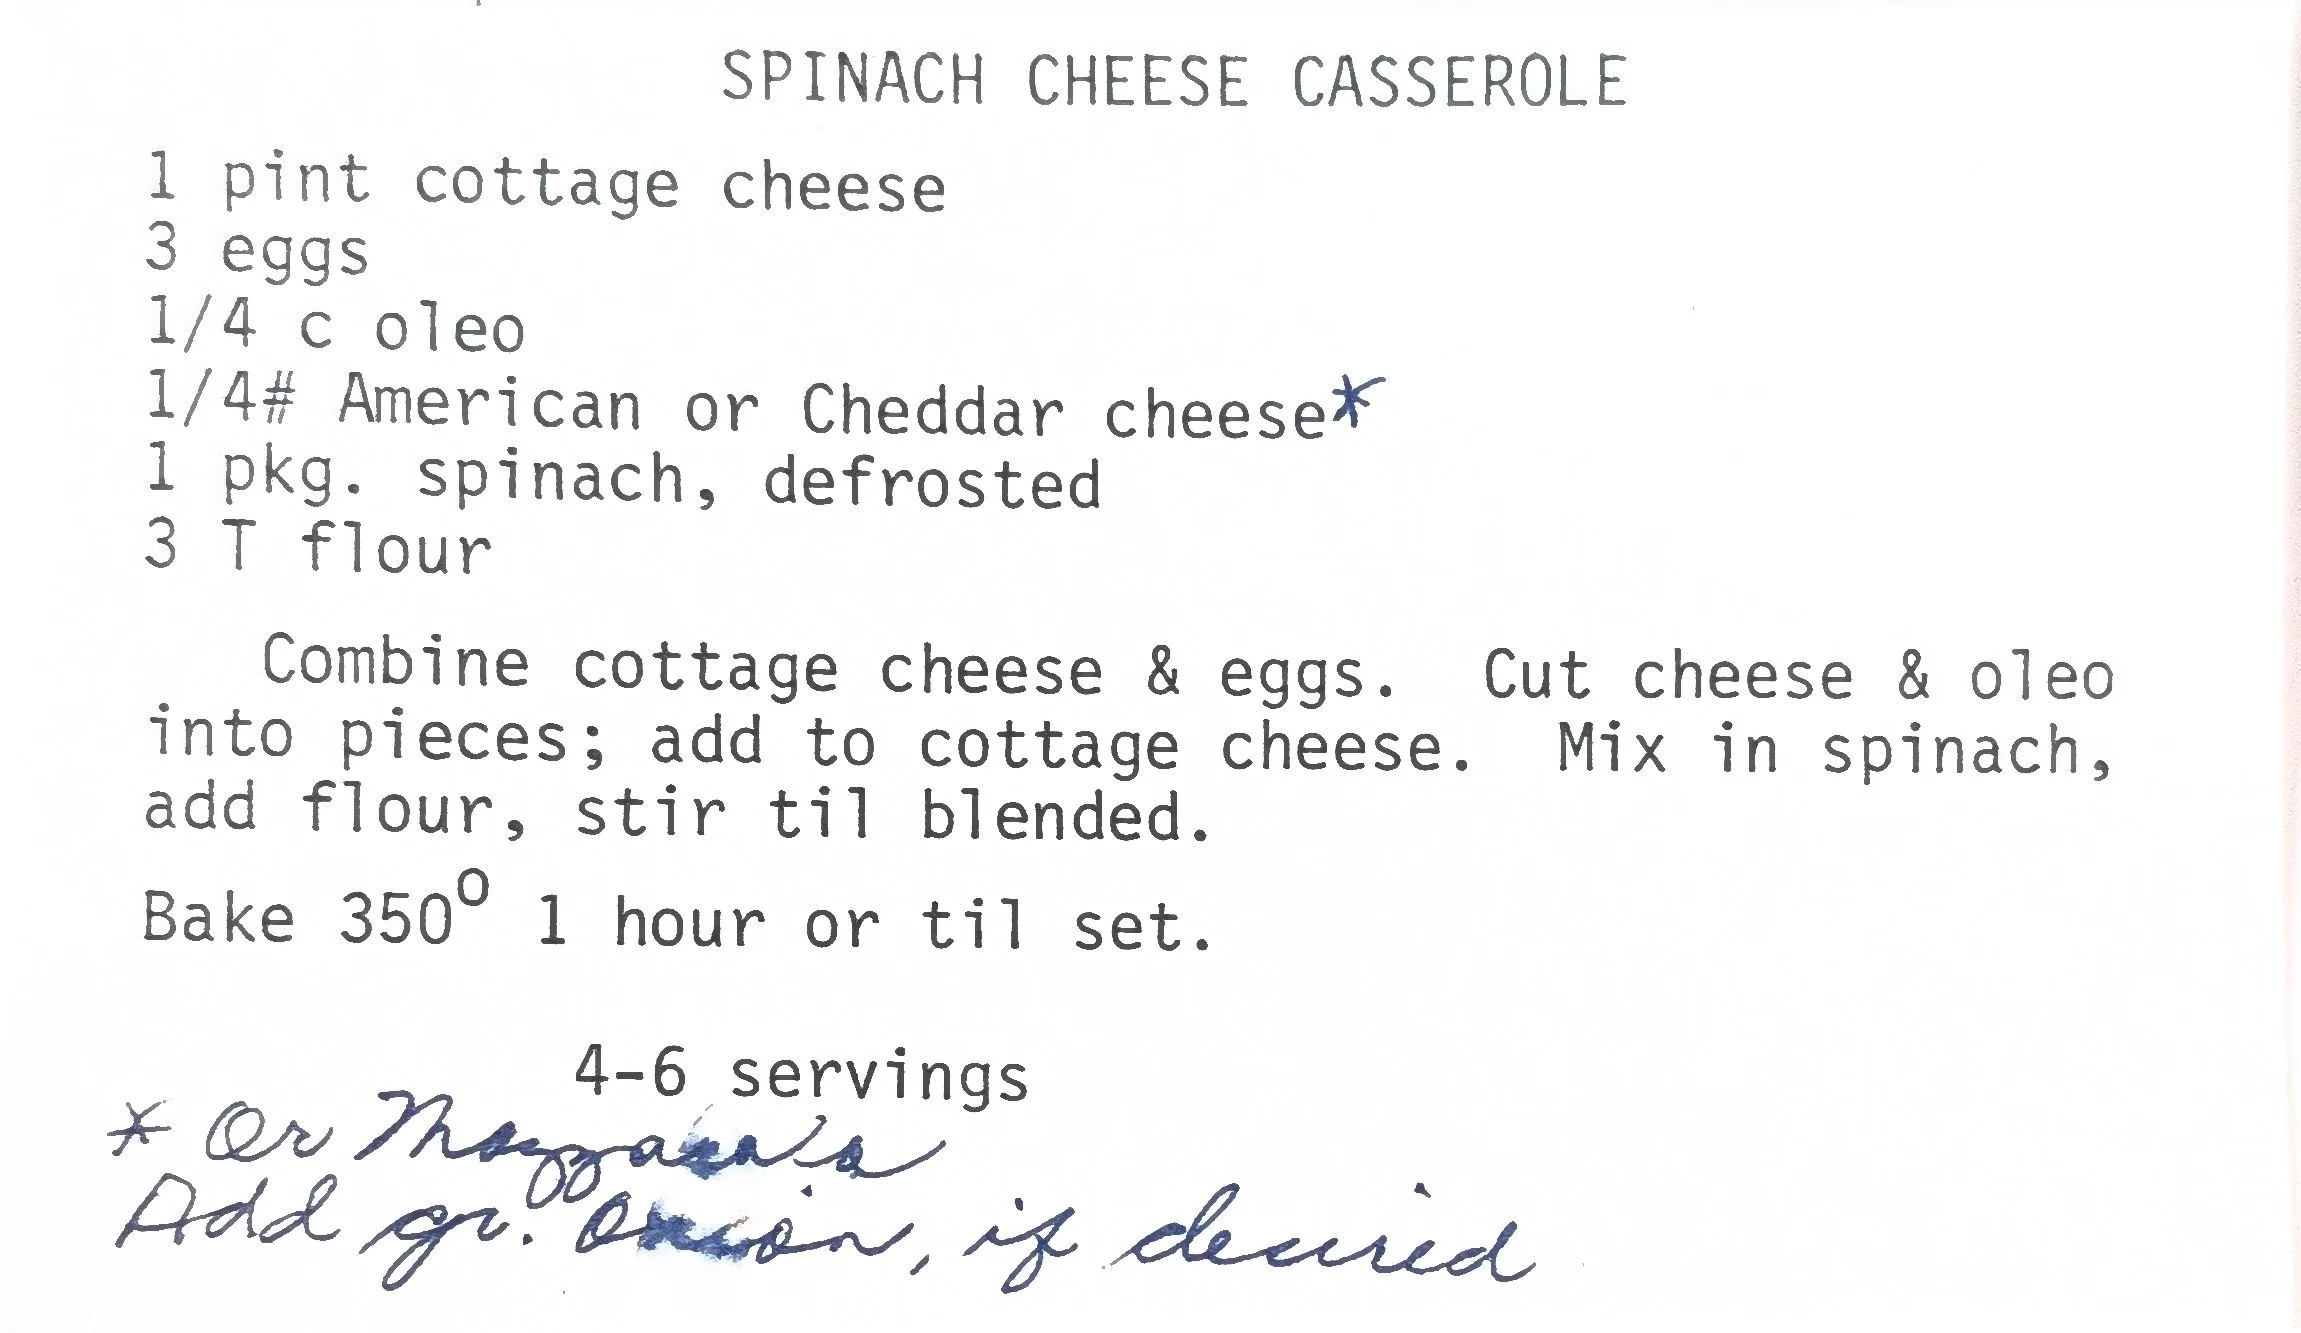 SPINACH CHEESE CASSEROLE
1 pint cottage cheese
3 eggs
1/4 c oleo
1/4# American or Cheddar cheese*
1 pkg. spinach, defrosted
3 T flour
Combine cottage cheese & eggs. Cut cheese & oleo
into pieces; add to cottage cheese. Mix in spinach,
add flour, stir til blended.
Bake 350° 1 hour or til set.
4-6 servings
* Or
Add gr. Onion, if desired